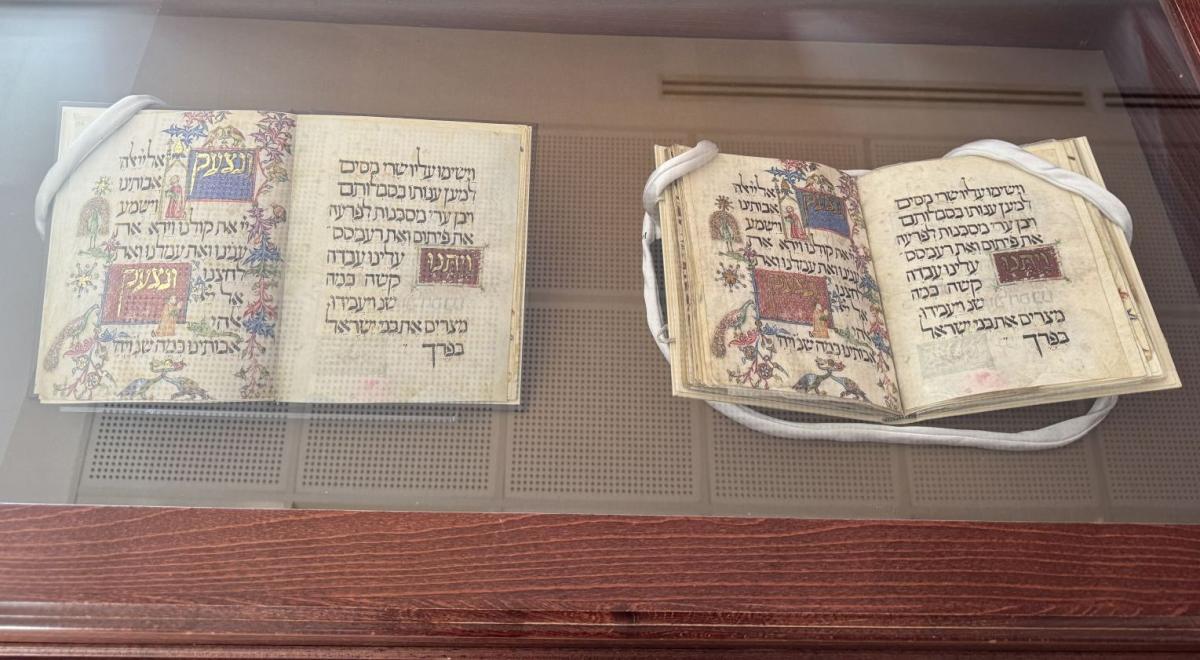 וישימו עליו שרי מסים
למען ענותו בסבלותם
ויבן ערי מסכנות לפרעה
את פיתום ואת רעמסס
ויתנו עלינו עבדה
קשה כמה
שנ ויעבידו
מצרים את בני ישראל
בפרך
ונצעק אל ייי אלה
אבותינו
וישמע
יי את קולנו וירא את
ענינו ואת עמלנו ואת
ונצעק לחצנו
אל יי
אלהי
אבותינו כמה שנ ויה
וישימו עליו שרי מסים
למען ענותו בסבלותם
ויבן ערי מסכנות לפרעה
את פיתום ואת רעמסס
ויתנו עלינו עבדה
קשה כמה
שנ ויעבידו
מצרים את בני ישראל
בפרך
ונצעק אל ייי אלה
אבותינו
וישמע
יי את קולנו וירא את
ענינו ואת עמלנו ואת
ונצעק לחצנו
אל יי
אלהי
אבותינו כמה שנ ויה